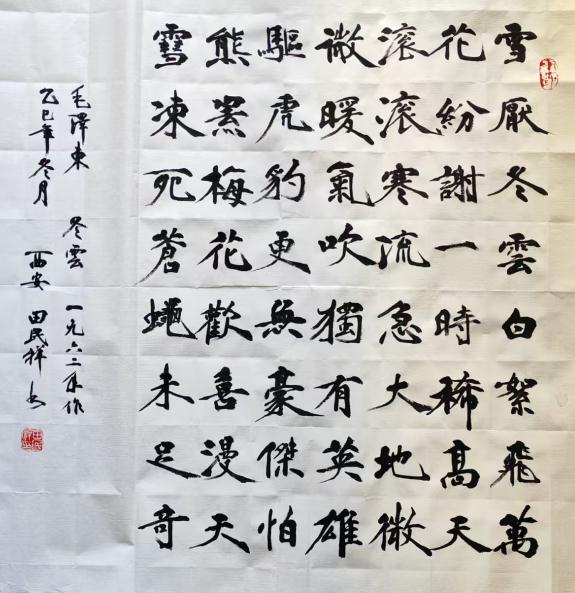 雪厭冬雲白絮飛萬
花紛謝一時稀高天
滾滾寒流急大地微
微暖氣吹獨有英雄
驅虎豹更無豪傑怕
熊罴梅花歡喜漫天
雪凍死蒼蠅未足奇
毛澤東 冬雲 一九六二年作
乙巳年冬月 西安 田民祥书